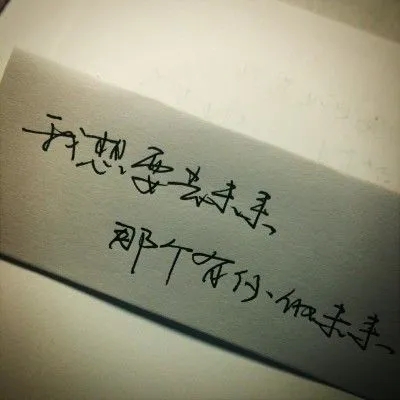 我想要去未来
那个有你的未来、